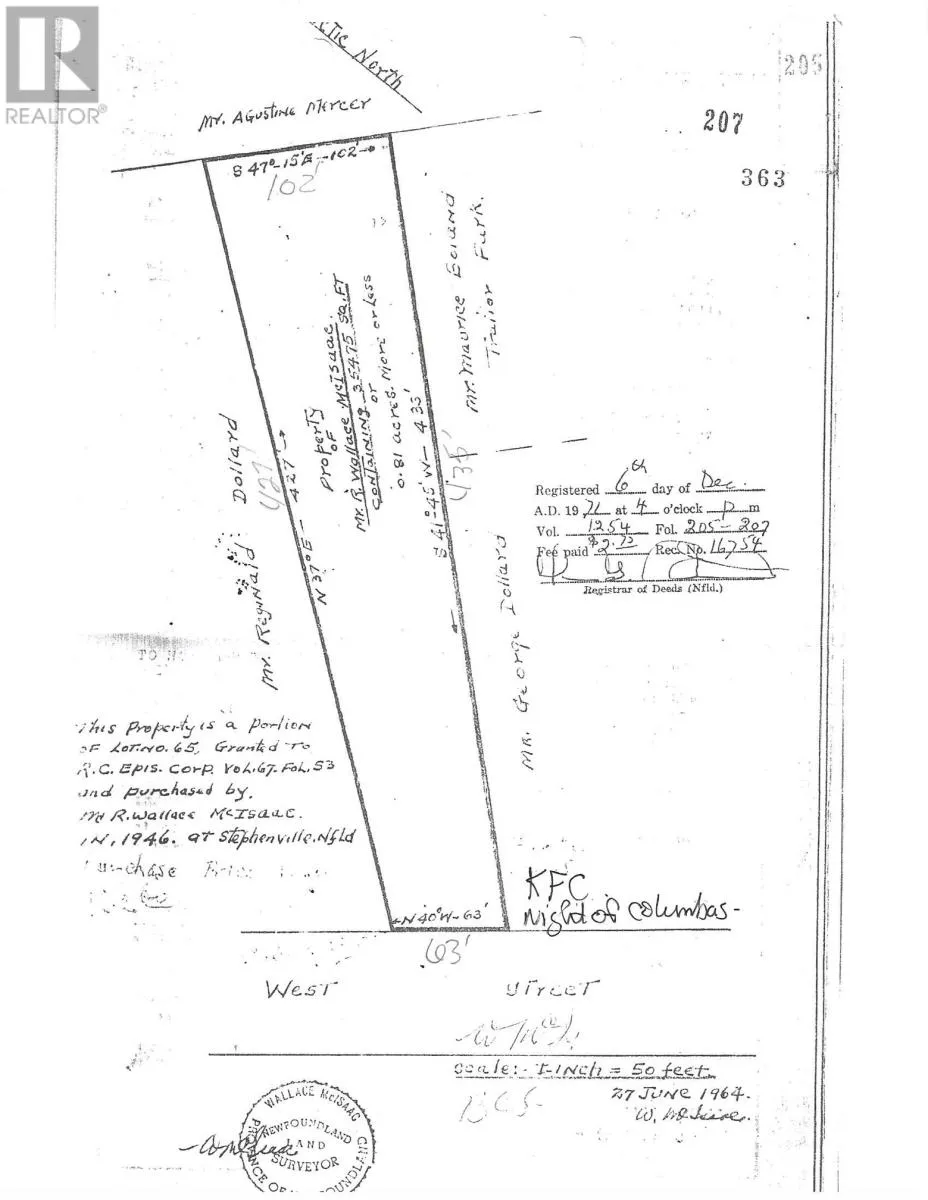 REALTOR®
North
205
207
363
Mr. Agustine Mercer
S 47°-15'E - 102'
102'
Mr. Maurice
Property
OF
Mr. R. Wallace McIsaac.
CONTAINING 35475 SQ. FT
or
0.81 acres. More or Less
Mr. Reginald Dollard
427'
N 37°E - 427'
S 41°-45'W - 435'
435'
Mr. George Dollard
Registered 6th day of Dec.
A.D. 1971 at 4 o'clock p m
Vol. 1254 Fol. 205-207
Fee paid $2.75 Rec. No. 16754
Registrar of Deeds (Nfld.)
This Property is a Portion
OF LOT. NO. 65, Granted To
R.C. Epis. Corp. Vol. 67. Fol. 53
and purchased by.
Mr R. Wallace McIsaac.
IN, 1946. at Stephenville, Nfld
KFC
Night of Columbas-
N 40°W - 63'
63'
West Street
Scale:- 1-INCH = 50 feet.
27 June 1964.
WALLACE McISAAC
NEWFOUNDLAND
LAND
SURVEYOR